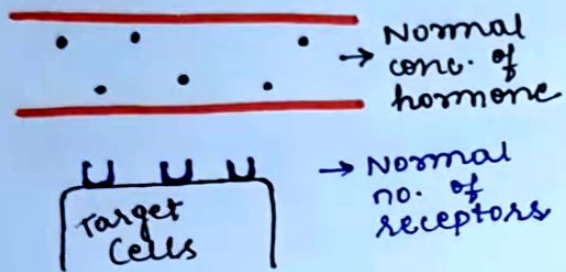 → Normal
conc. of
hormone
→ Normal
no. of
receptors
Target
Cells